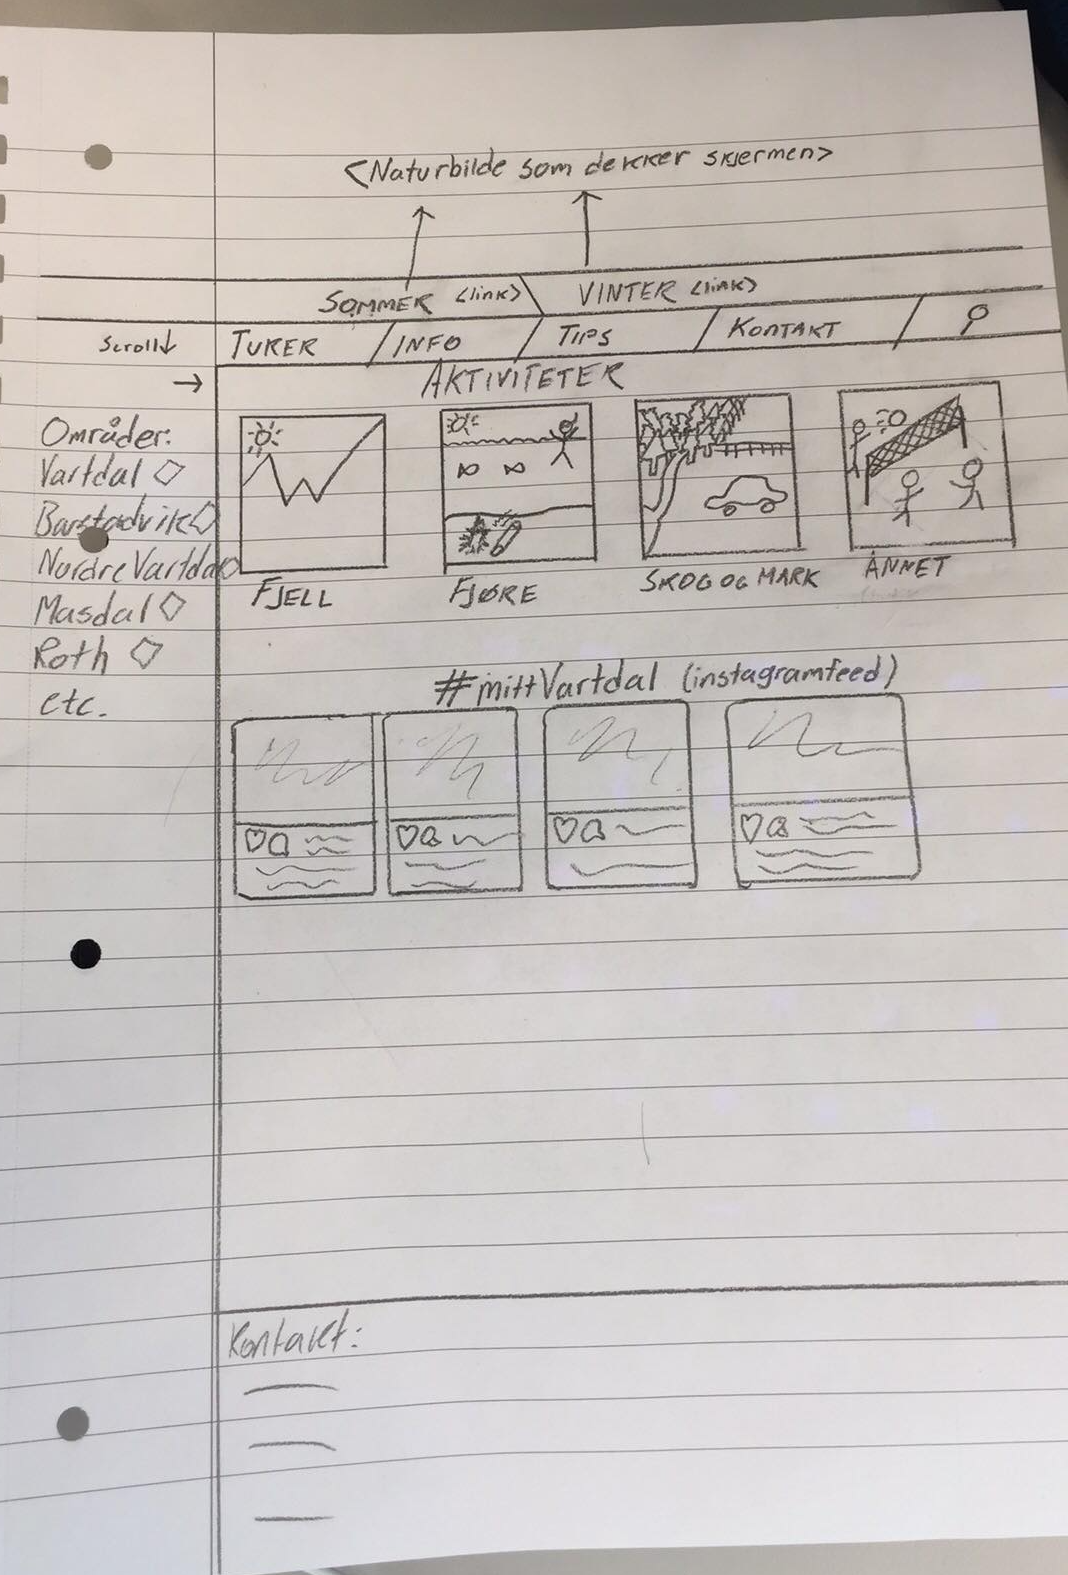 <Naturbilde som dekker skjermen>
SOMMER <link> VINTER <link>
Scroll↓
TURER / INFO / TIPS / KONTAKT /
→ AKTIVITETER
Områder:
Vartdal
Barstadvik
Nordre Vartdal
Masdal
Roth
etc.
FJELL FJØRE SKOG OG MARK ANNET
#mittVartdal (instagramfeed)
Kontakt: